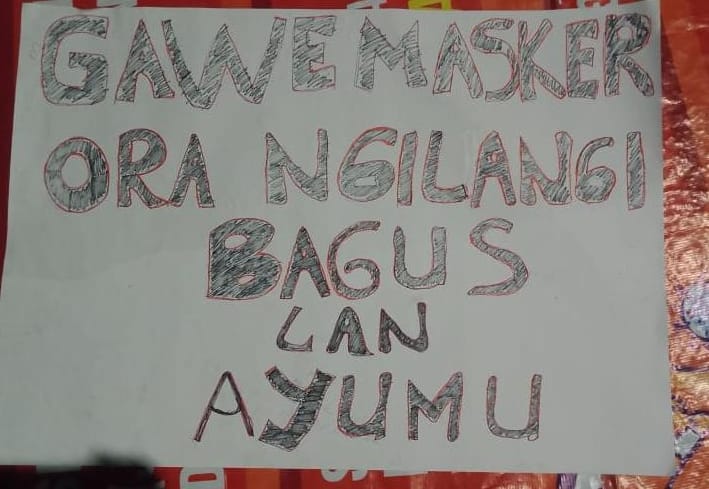 GAWE MASKER
ORA NGILANGI
BAGUS
LAN
AYUMU